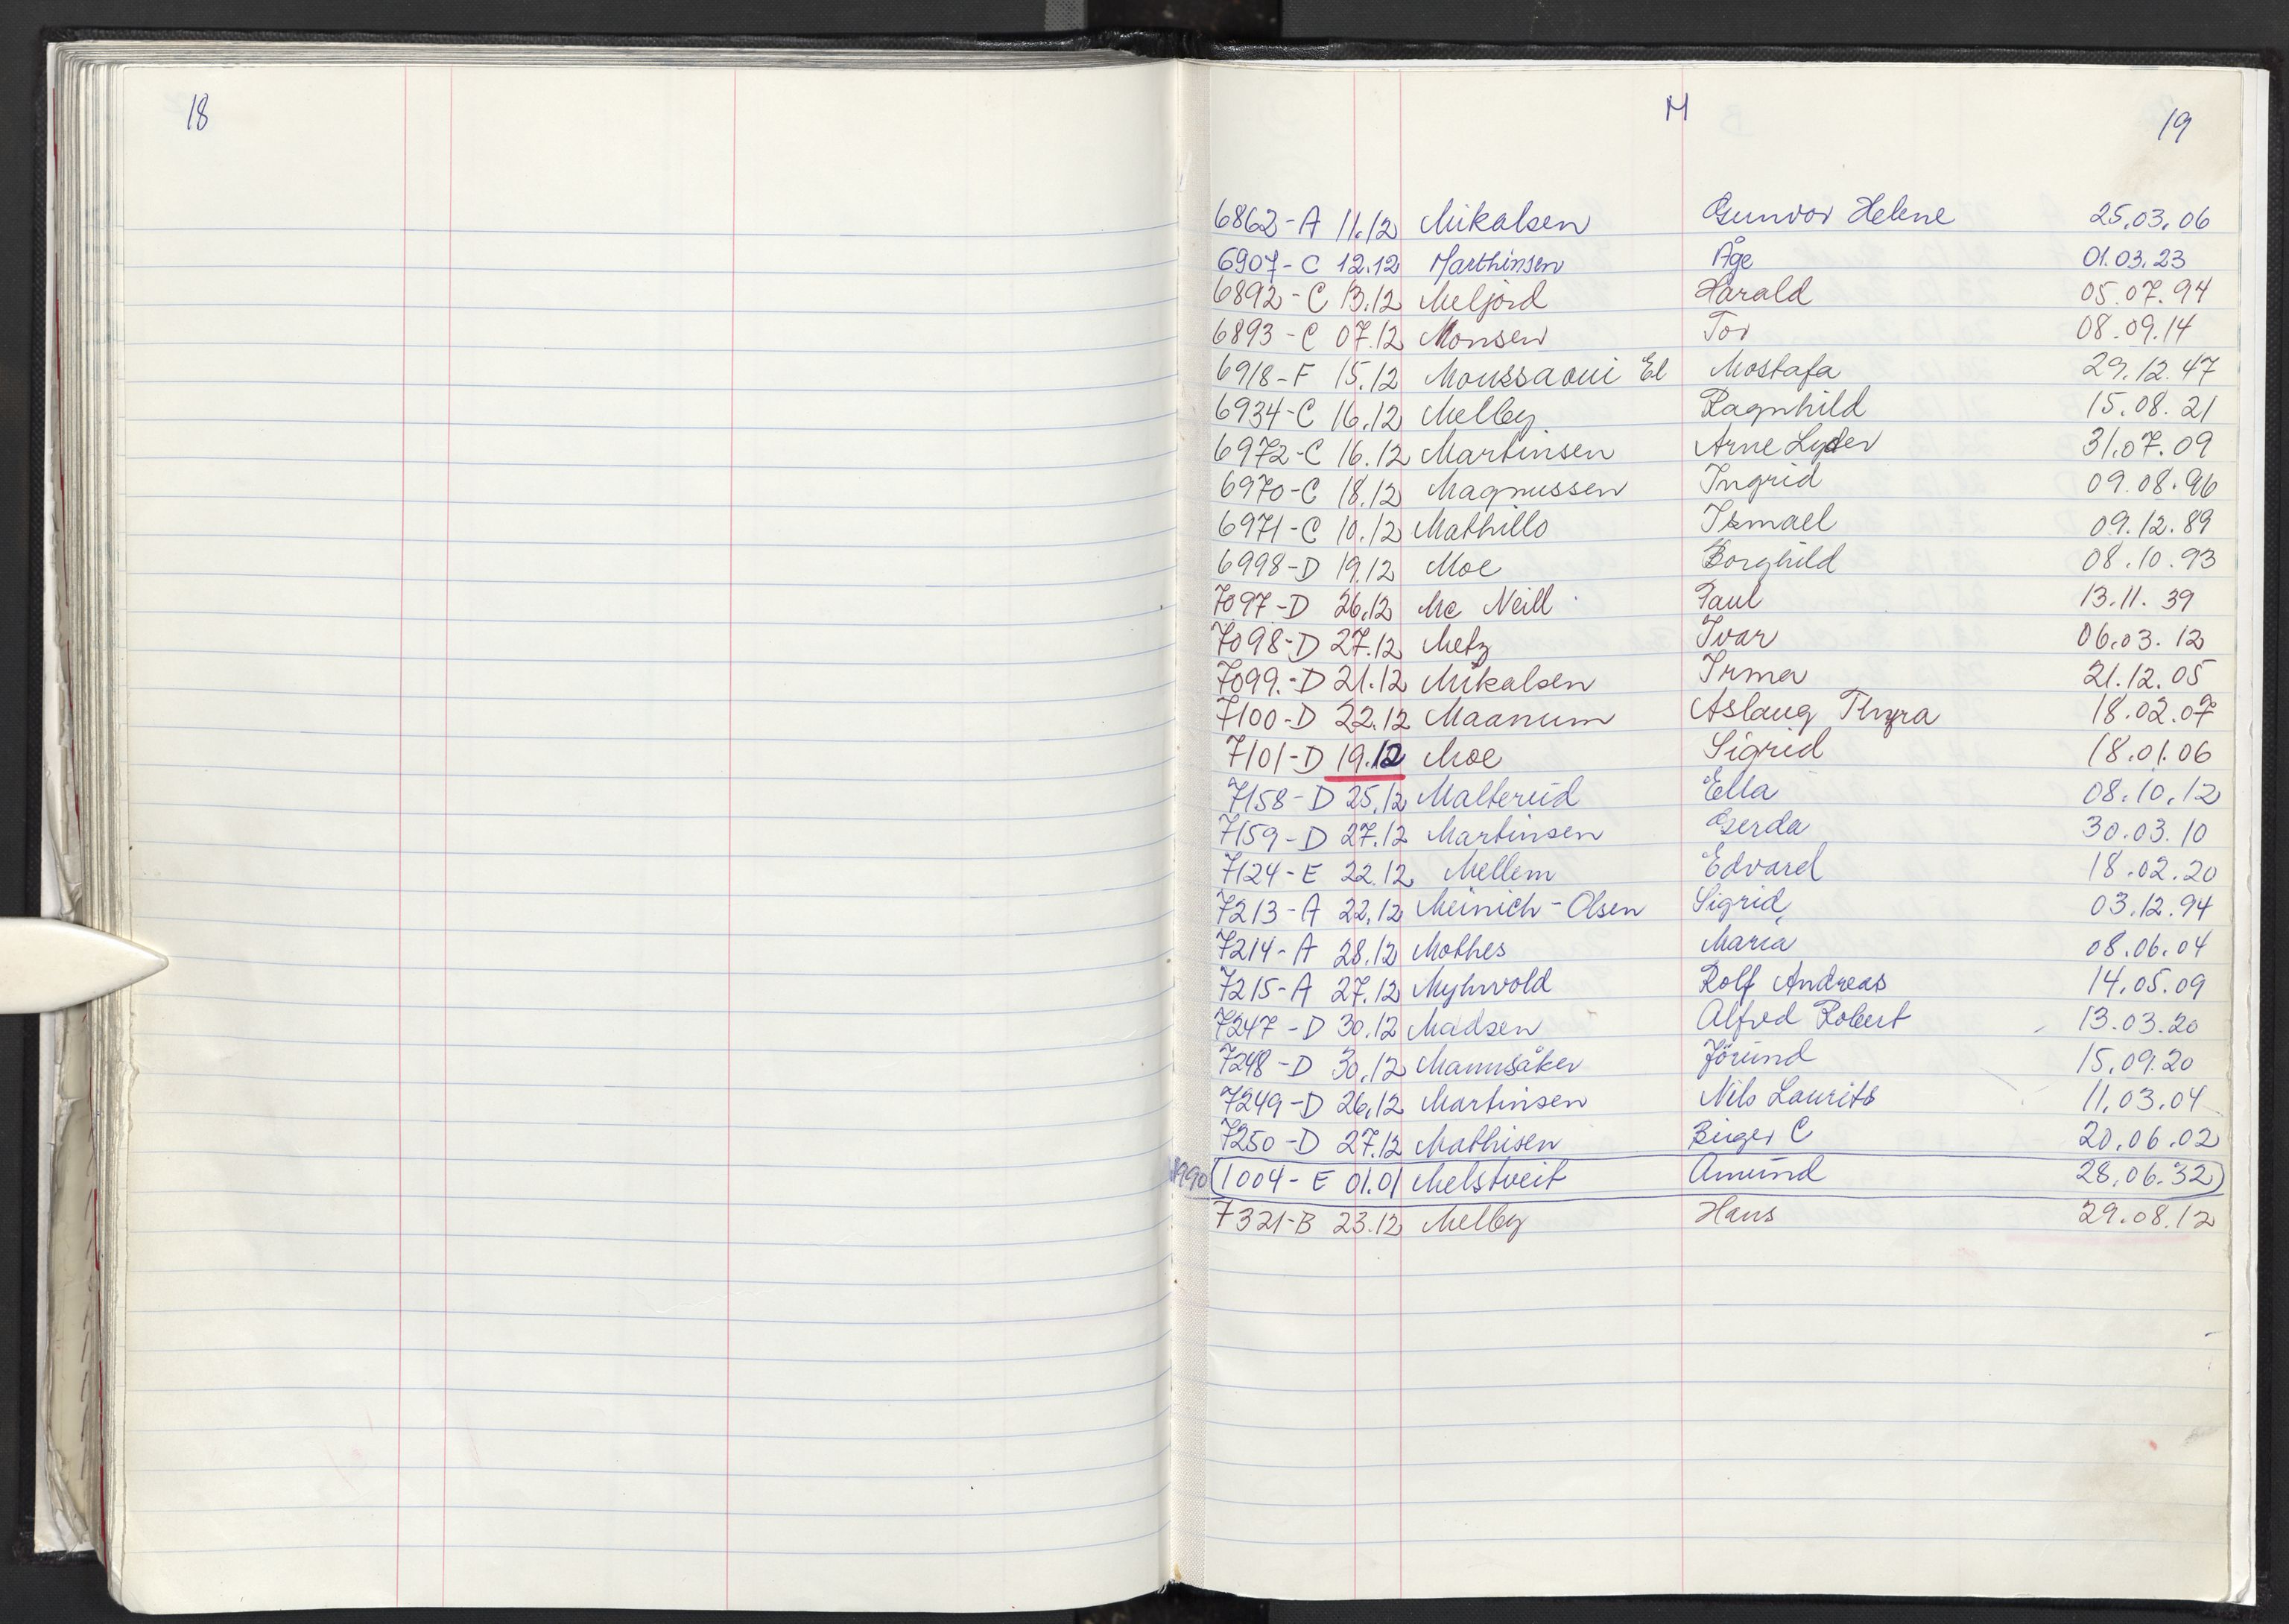 18
M
19
6862-A 11.12 Mikalsen Gunvor Helene 25.03.06
6907-C 12.12 Marthinsen Åge 01.03.23
6892-C 13.12 Meljord Harald 05.07.94
6893-C 07.12 Monsen Tor 08.09.14
6918-F 15.12 Moussaoui El Mostafa 29.12.47
6934-C 16.12 Melby Ragnhild 15.08.21
6972-C 16.12 Martinsen Arne Lyder 31.07.09
6970-C 18.12 Magnussen Ingrid 09.08.96
6971-C 10.12 Mathillo Ismael 09.12.89
6998-D 19.12 Moe Borghild 08.10.93
7097-D 26.12 Mc Neill Paul 13.11.39
7098-D 27.12 Metz Ivar 06.03.12
7099.-D 21.12 Mikalsen Irma 21.12.05
7100-D 22.12 Maanum Aslaug Thyra 18.02.07
7101-D 19.12 Moe Sigrid 18.01.06
7158-D 25.12 Maltereid Ella 08.10.12
7159-D 27.12 Martinsen Gerda 30.03.10
7124-E 22.12 Mellem Edvard 18.02.20
7213-A 22.12 Meinich-Olsen Sigrid 03.12.94
7214-A 28.12 Mothes Maria 08.06.04
7215-A 27.12 Myhrvold Rolf Andreas 14.05.09
7247-D 30.12 Madsen Alfred Robert 13.03.20
7248-D 30.12 Mannsåker Jörund 15.09.20
7249-D 26.12 Martinsen Nils Laurits 11.03.04
7250-D 27.12 Mathisen Birger C 20.06.02
1990 1004-E 01.01 Melstveit Amund 28.06.32
7321-B 23.12 Melby Hans 29.08.12